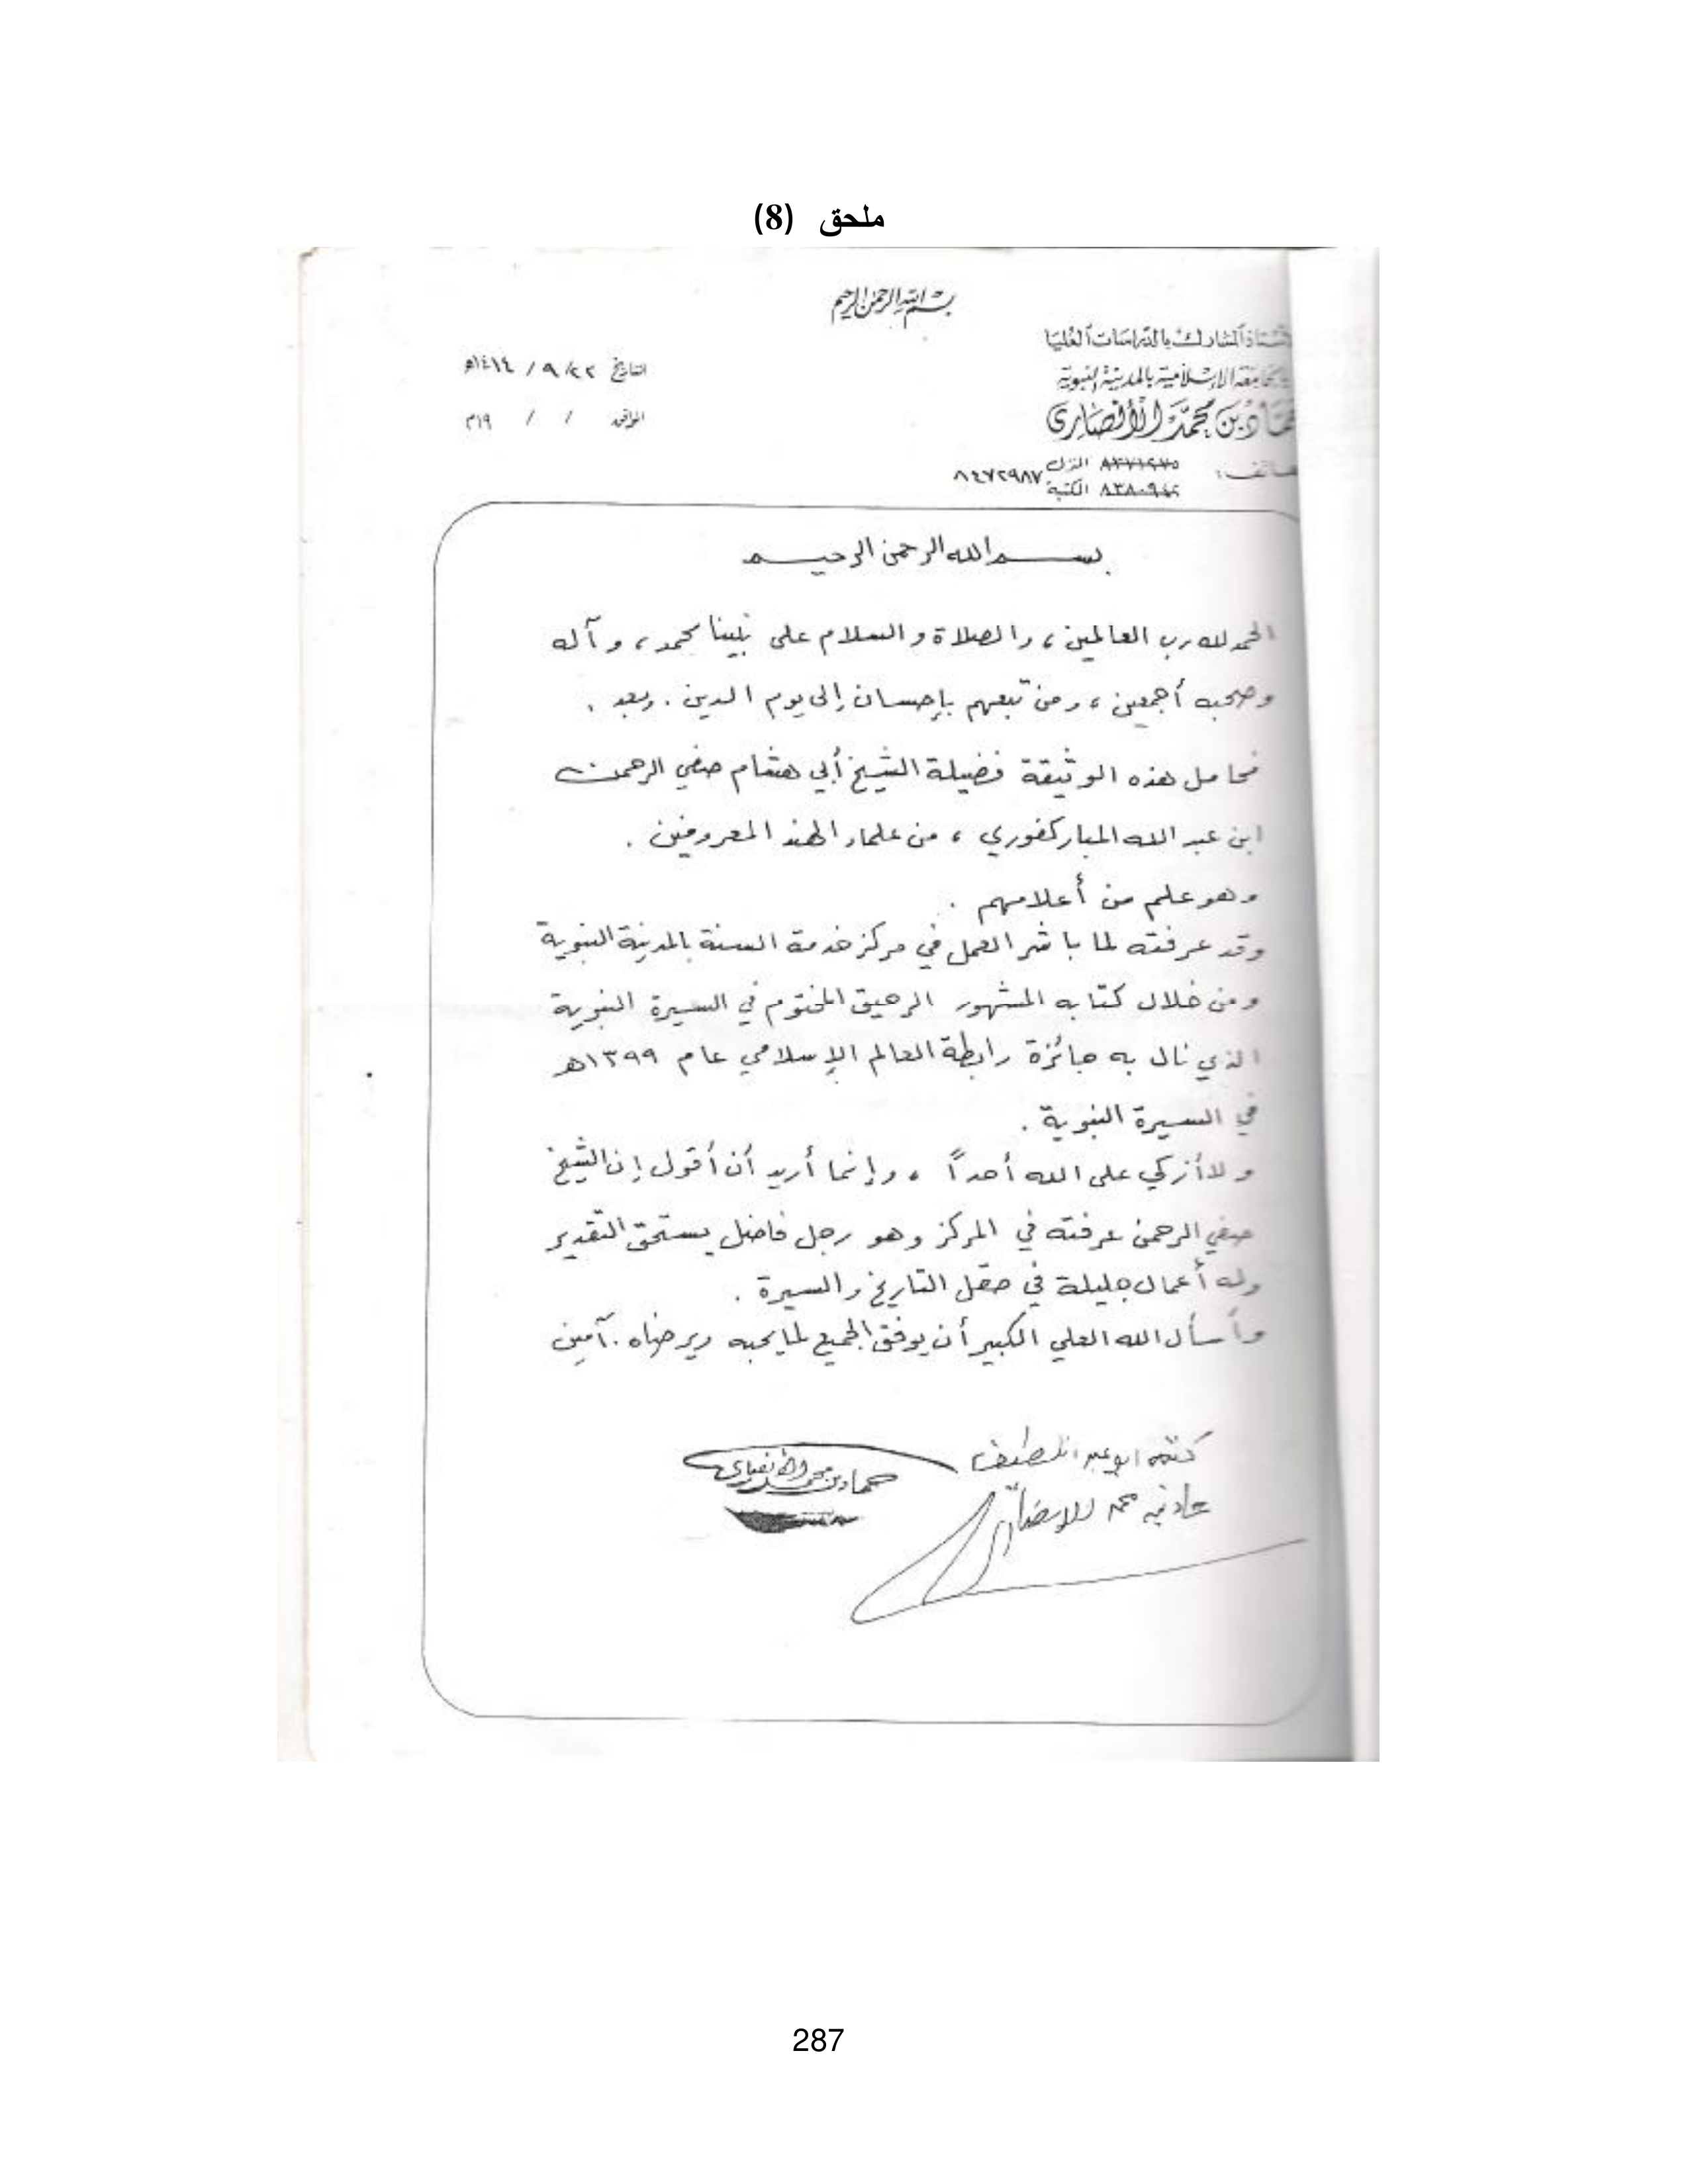 ملحق (8)
بسم الله الرحمن الرحيم
الأستاذ المشارك بالدراسات العليا
بالجامعة الإسلامية بالمدينة النبوية
حماد بن محمد الأنصاري
هاتف: المنزل
المكتبة ٨٤٧٢٩٨٧
التاريخ ٢٢/ ٩ / ١٤١٤هـ
الموافق / / ١٩م
بسم الله الرحمن الرحيم
الحمد لله رب العالمين ، والصلاة والسلام على نبينا محمد ، وآله
وصحبه أجمعين ، ومن تبعهم بإحسان إلى يوم الدين . وبعد .
فحامل هذه الوثيقة فضيلة الشيخ أبي هشام صفي الرحمن
ابن عبد الله المباركفوري ، من علماء الهند المعروفين .
وهو علم من أعلامهم .
وقد عرفته لما باشر العمل في مركز خدمة السنة بالمدينة النبوية
ومن خلال كتابه المشهور الرحيق المختوم في السيرة النبوية
الذي نال به جائزة رابطة العالم الإسلامي عام ١٣٩٩هـ
في السيرة النبوية .
ولا أزكي على الله أحداً ، وإنما أريد أن أقول إن الشيخ
صفي الرحمن عرفته في المركز وهو رجل فاضل يستحق التقدير
وله أعمال جليلة في حقل التاريخ والسيرة .
وأسأل الله العلي الكبير أن يوفق الجميع لما يحبه ويرضاه . آمين
كتبه ابو عبد اللطيف
حماد بن محمد الأنصاري
حماد بن محمد الأنصاري
287